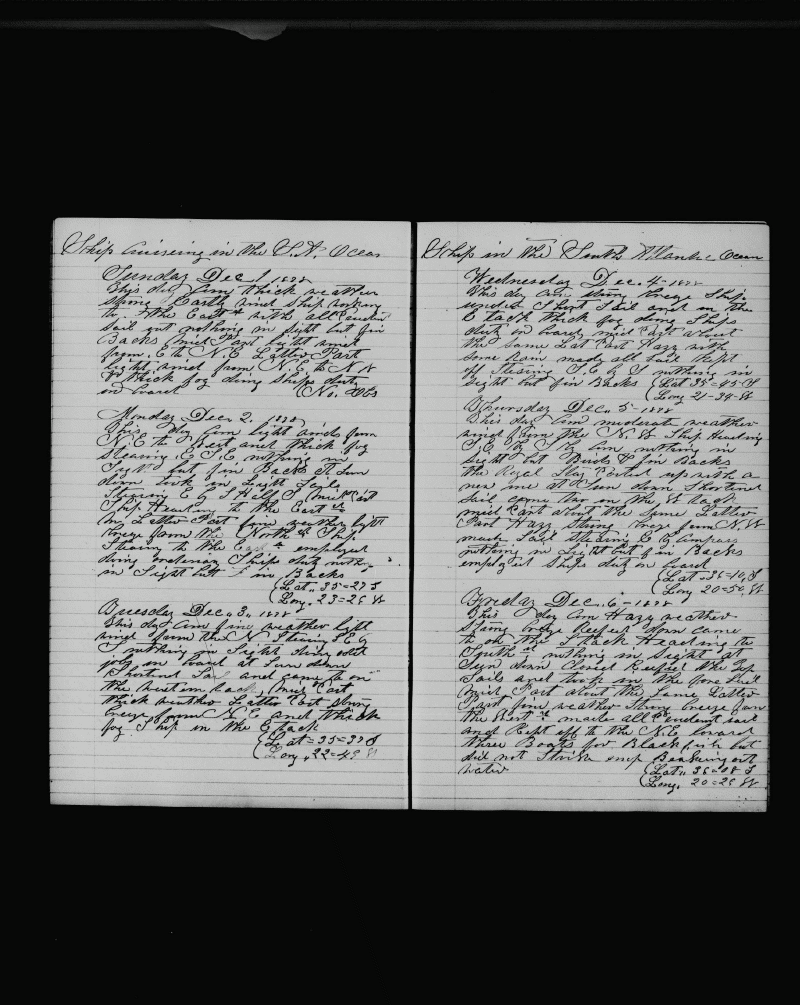 Ship Cruiseing in the S.A. Ocean
Sunday Dec 1, 1878
This day Com thick weather
strong Easterly wind Ship working
to the East with all prudent
sail out nothing in sight but fin
Backs Mid Part light wind
from E to N.E. Latter Part
light wind from N.E. to N N
W thick fog doing Ships duty
on board (No. Obs
Monday Dec, 2, 1878
This day Com light winds from
N.E. to West and thick fog
Stearing E S.E nothing in
Sight but fin Backs at Sun
down took in Light Sails
Stearing E by S Half S Mid Part
Ship Heading to the East
Latter Part fine weather light
breze from the North Ship
Stearing to the East employed
doing ordenary Ships duty nothing
in Sight but fin Backs
(Lat,, 35=27 S
(Long, 23=26 W
Tuesday Dec, 3, 1878
This day Com fine weather light
wind from the N Stearing S E by
S nothing in Sight doing odd
jobs on board at Sun down
Shortend Sail and came to on
the western tack, Mid Part
thick weather Latter Part strong
breeze from N.E. and thick
fog Ship in the E tack
(Lat=35=37 S
(Long,, 22=49 W
Ship in the South Atlantic Ocean
Wednesday Dec, 4-1878
This day Com strong breeze Ship
under Short Sail and in the
E tack thick fog doing Ships
duty on board mid Part about
the same Lat Part Hazy with
some Rain made all sail Kept
off Stearing S.E by S nothing in
Sight but fin Backs (Lat 35=45 S
(Long 21-39 W
Thursday Dec,, 5-1878
This day Com moderate weather
wind from the N.W Ship Heading
S.E by E nothing in
Sight but Birds & fin Backs
the Royal Stay Parted up with a
new one at Sun down Shortened
Sail came two on the W tack
mid Part about the same Latter
Part Hazy Strong breze from N.W
made Sail Stearing E by Compass
nothing in Sight but fin Backs
employed Ships duty on board
(Lat,, 36=10, S
(Long 20=50 W
Friday Dec,, 6-1878
This day Com Hazy weather
Strong breze Reefed down came
to on the S tack Heading to
South nothing in Sight at
Sun down Closed Reefed the Top
Sails and took in the fore Sail
Mid Part about the same Latter
Part fine weather Strong breeze from
the West made all Prudent sail
and Kept off to the N.E. lowerd
three Boats for Blackfish but
did not Strike emp Breaking out
water (Lat,, 36=08 S
(Long, 20=26 W